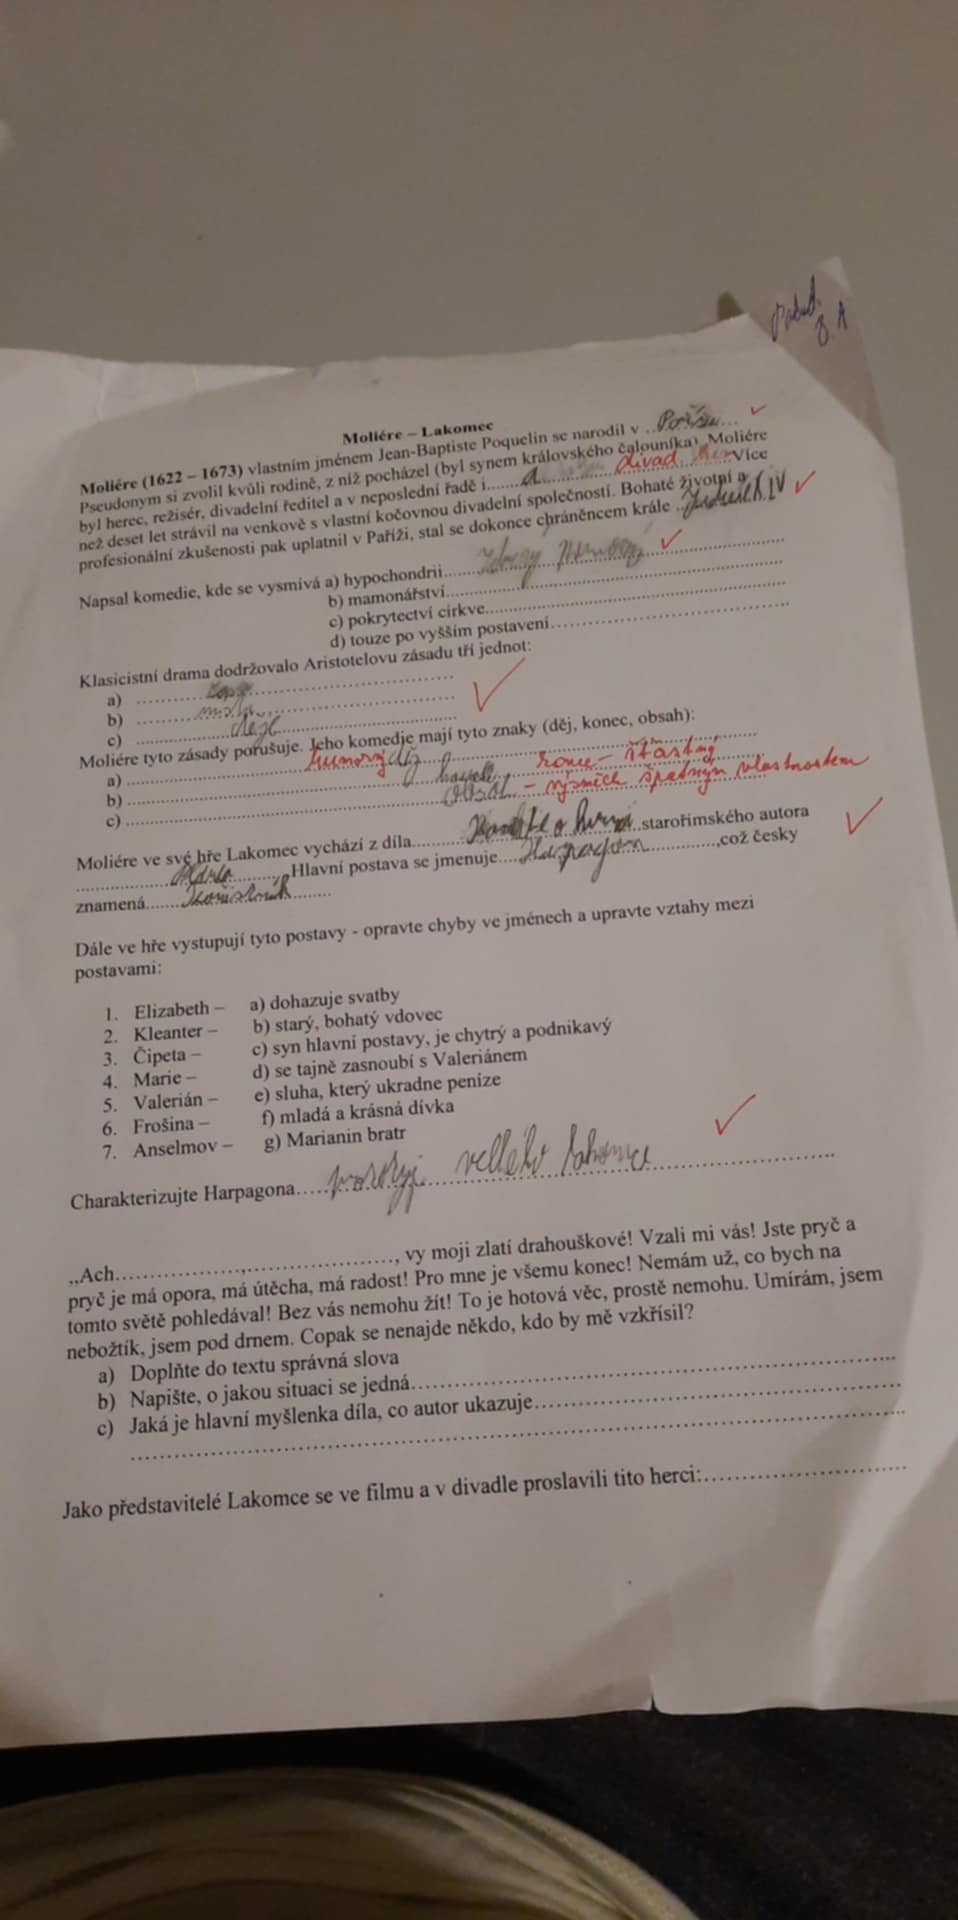 8. A
Moliére – Lakomec
Moliére (1622 – 1673) vlastním jménem Jean-Baptiste Poquelin se narodil v ..............
Pseudonym si zvolil kvůli rodině, z níž pocházel (byl synem královského čalouníka). Moliére
byl herec, režisér, divadelní ředitel a v neposlední řadě i.............. divad. Více
než deset let strávil na venkově s vlastní kočovnou divadelní společností. Bohaté životní a
profesionální zkušenosti pak uplatnil v Paříži, stal se dokonce chráněncem krále .. Ludvík XIV
Napsal komedie, kde se vysmívá a) hypochondrii..............
b) mamonářství..............
c) pokrytectví církve..............
d) touze po vyšším postavení..............
Klasicistní drama dodržovalo Aristotelovu zásadu tří jednot:
a) ..............
b) .............. místa
c) .............. děje
Moliére tyto zásady porušuje. Jeho komedie mají tyto znaky (děj, konec, obsah):
a) .............. humorný děj
b) .............. konec – šťastný
c) .............. obsah – výsměch špatným vlastnostem
Moliére ve své hře Lakomec vychází z díla.............. Komedie o hrnci ..starořímského autora
..............,, Hlavní postava se jmenuje.... Harpagon ..............,což česky
znamená..............
Dále ve hře vystupují tyto postavy - opravte chyby ve jménech a upravte vztahy mezi
postavami:
1. Elizabeth – a) dohazuje svatby
2. Kleanter – b) starý, bohatý vdovec
3. Čipeta – c) syn hlavní postavy, je chytrý a podnikavý
4. Marie – d) se tajně zasnoubí s Valeriánem
5. Valerián – e) sluha, který ukradne peníze
6. Frošina – f) mladá a krásná dívka
7. Anselmov – g) Marianin bratr
Charakterizujte Harpagona..... velkého lakomce
„Ach..............,.............., vy moji zlatí drahouškové! Vzali mi vás! Jste pryč a
pryč je má opora, má útěcha, má radost! Pro mne je všemu konec! Nemám už, co bych na
tomto světě pohledával! Bez vás nemohu žít! To je hotová věc, prostě nemohu. Umírám, jsem
nebožtík, jsem pod drnem. Copak se nenajde někdo, kdo by mě vzkřísil?
a) Doplňte do textu správná slova
b) Napište, o jakou situaci se jedná..............
c) Jaká je hlavní myšlenka díla, co autor ukazuje..............
Jako představitelé Lakomce se ve filmu a v divadle proslavili tito herci:..............